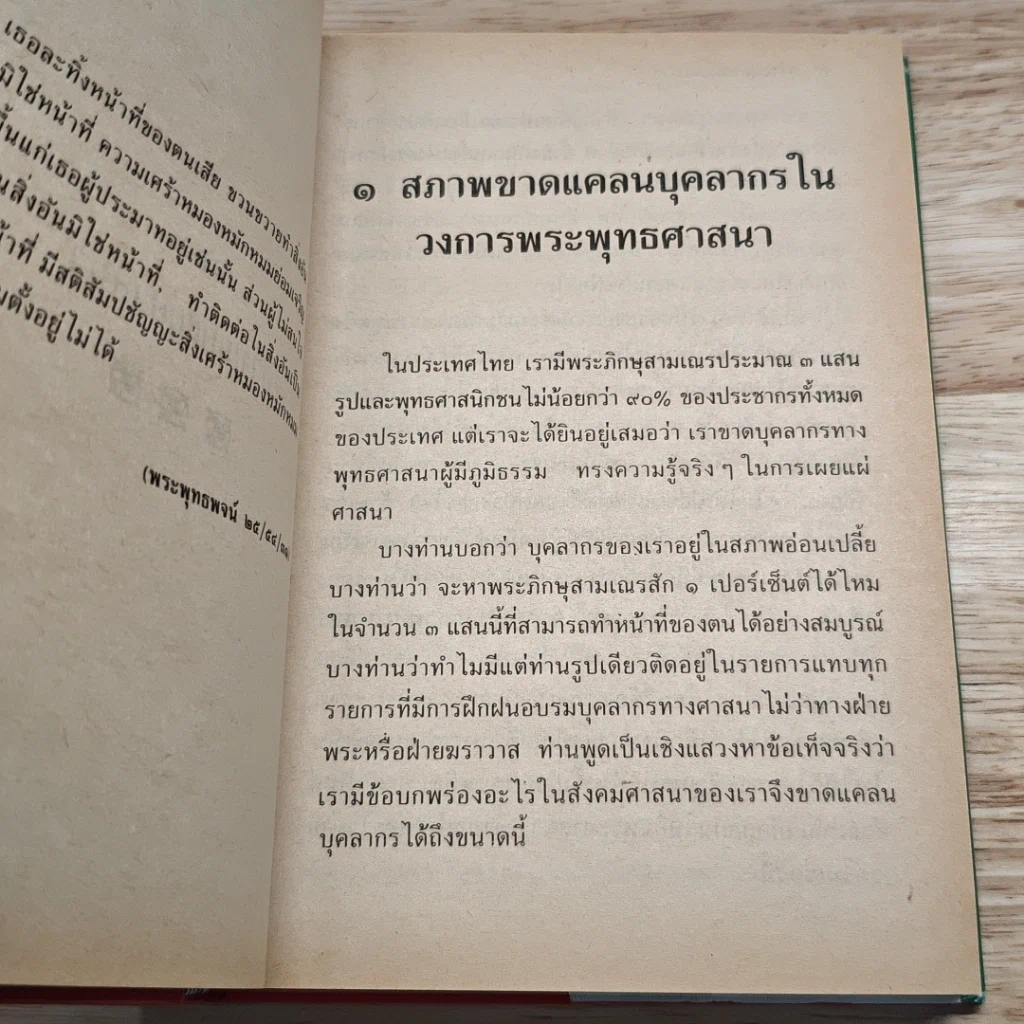 เธอละทิ้งหน้าที่ของตนเสีย ขวนขวายทำสิ่งอัน
มิใช่หน้าที่ ความเศร้าหมองหมักหมมย่อมเจริญ
ขึ้นแก่เธอผู้ประมาทอยู่เช่นนั้น ส่วนผู้ไม่สนใจ
สิ่งอันมิใช่หน้าที่, ทำติดต่อในสิ่งอันเป็น
หน้าที่ มีสติสัมปชัญญะสิ่งเศร้าหมองหมักหมม
ตั้งอยู่ไม่ได้
(พระพุทธพจน์ ๒๕/๕๔/
๑ สภาพขาดแคลนบุคลากรใน
วงการพระพุทธศาสนา
ในประเทศไทย เรามีพระภิกษุสามเณรประมาณ ๓ แสน
รูปและพุทธศาสนิกชนไม่น้อยกว่า ๙๐% ของประชากรทั้งหมด
ของประเทศ แต่เราจะได้ยินอยู่เสมอว่า เราขาดบุคลากรทาง
พุทธศาสนาผู้มีภูมิธรรม ทรงความรู้จริง ๆ ในการเผยแผ่
ศาสนา
บางท่านบอกว่า บุคลากรของเราอยู่ในสภาพอ่อนเปลี้ย
บางท่านว่า จะหาพระภิกษุสามเณรสัก ๑ เปอร์เซ็นต์ได้ไหม
ในจำนวน ๓ แสนนี้ที่สามารถทำหน้าที่ของตนได้อย่างสมบูรณ์
บางท่านว่าทำไมมีแต่ท่านรูปเดียวติดอยู่ในรายการแทบทุก
รายการที่มีการฝึกฝนอบรมบุคลากรทางศาสนาไม่ว่าทางฝ่าย
พระหรือฝ่ายฆราวาส ท่านพูดเป็นเชิงแสวงหาข้อเท็จจริงว่า
เรามีข้อบกพร่องอะไรในสังคมศาสนาของเราจึงขาดแคลน
บุคลากรได้ถึงขนาดนี้